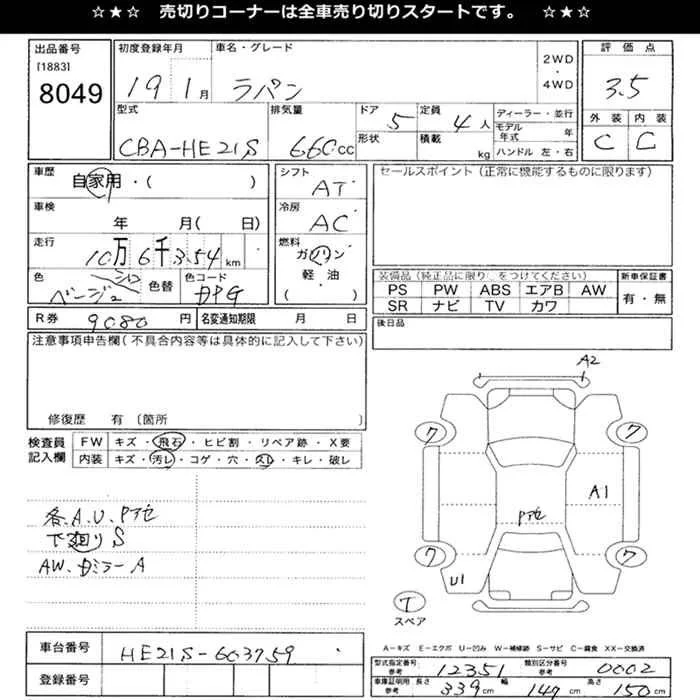 ☆★☆ 売切りコーナーは全車売り切りスタートです。 ☆★☆
出品番号
[1883]
8049
初度登録年月
19 1月
車名・グレード
ラパン
2WD
・
4WD
評価点
3.5
外装 内装
C C
型式
CBA-HE21S
排気量
660cc
ドア
5
形状
定員
4人
積載
kg
ディーラー・並行
モデル年式 年
ハンドル 左・右
車歴
自家用・( )
車検
年 月( 日)
走行
10万6千354km
色
ベージュ
色替
色コード
シフト
AT
冷房
AC
燃料
ガソリン
軽・油
( )
セールスポイント(正常に機能するものに限ります)
装備品(純正品に限り○をつけてください)
PS PW ABS エアB AW
SR ナビ TV カワ
新車保証書
有・無
後日品
R券 9080円
名変通知期限 月 日
注意事項申告欄(不具合内容等は具体的に記入して下さい)
修復歴 有 〔箇所
検査員
記入欄
FW キズ・飛石・ヒビ割・リペア跡・X要
内装 キズ・汚レ・コゲ・穴・スレ・キレ・破レ
各A.U.Pアセ
下廻りS
AW、ドミラーA
A2
ワ ワ
A1
Pアセ
ワ ワ
U1
T
スペア
車台番号
HE21S-603759
登録番号
A－キズ E－エクボ U－凹み W－補修跡 S－サビ C－腐食 XX－交換済
型式指定番号
参考 12351
類別区分番号
参考 0002
車庫証明用
参考
長さ 339cm 幅 147cm 高さ 150cm